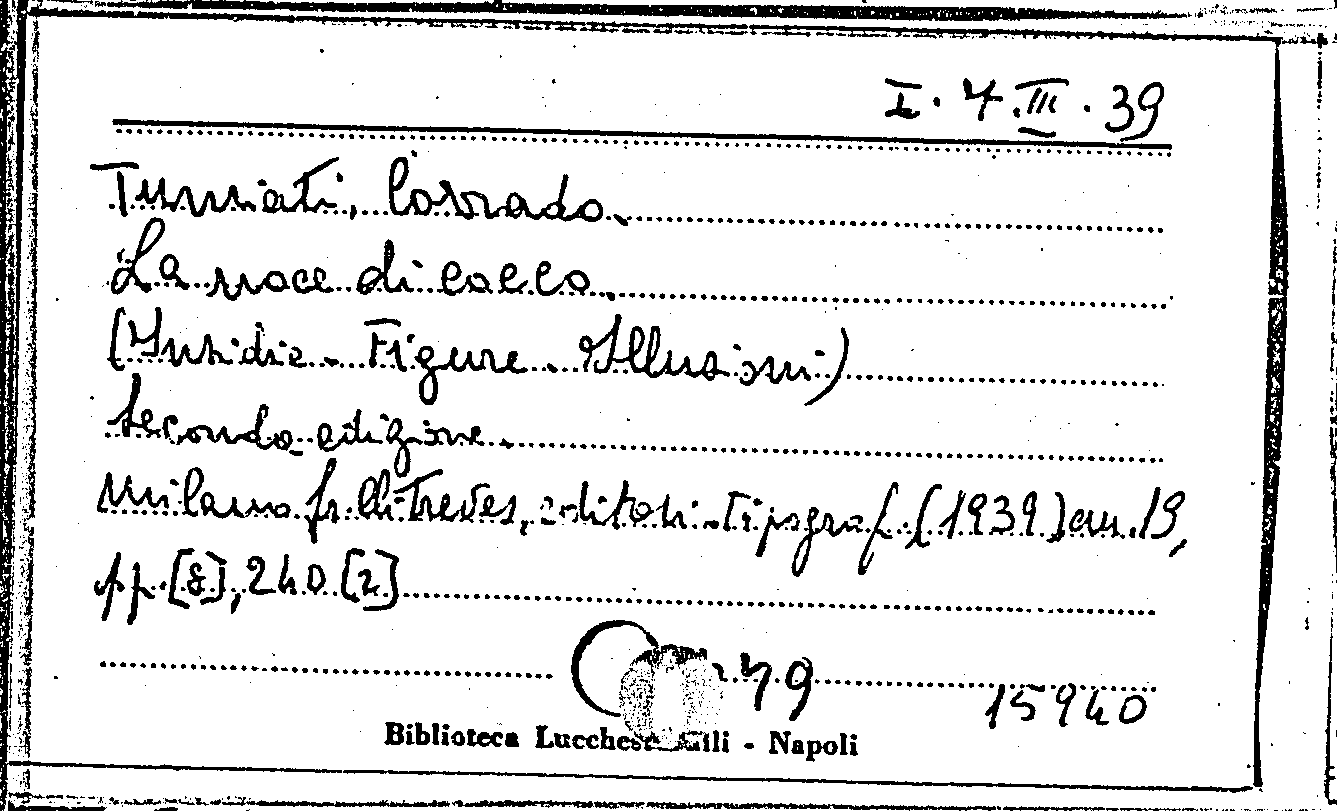 I. 7. III. 39
Tumiati, Corrado.
La noce di cocco.
(Insidie. Figure. Illusioni)
Seconda edizione.
Milano fr.lli Treves, editori-tipograf. (1939) an. 19,
pp. [8], 240 [2]
79
15940
Biblioteca Lucchesi Palli - Napoli